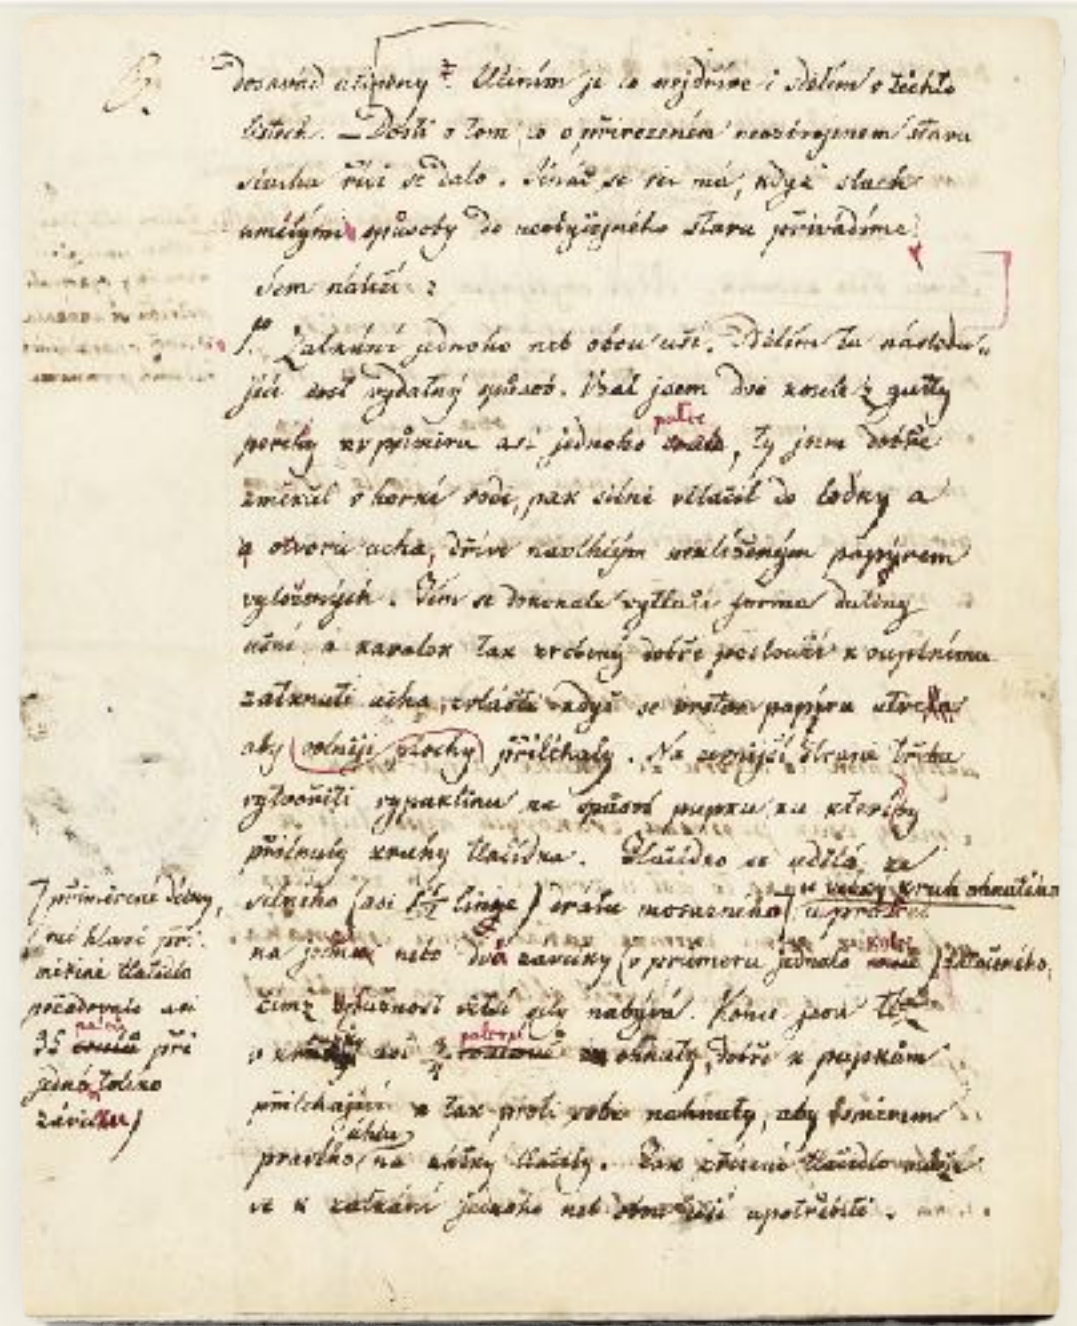 dosavád
Učiním je co nejdříve i sdělím v těchto
listech. – Dosti o tom, co o přirozeném
stavu
sluchu říci se dalo. Jináč se věc má, když sluch
umělými spůsoby do neobyčejného stavu přivádíme.
Sem náleží:
1. Zatkání jednoho neb obou uší. Dělím tu následu„
jící dosť vydatný spůsob. Vzal jsem dvě koule z gutty
perchy v průměru asi jednoho palce, ty jsem dobře
změkčil v horké vodě, pak silně vtlačil do boltky a
otvoru ucha, dříve navlhlým neklíženým papýrem
vyložených. Tím se dokonale vytlačí forma dutiny
ušní a kavalek tak zrobený dobře poslouží k ouplnímu
zatknutí ucha, zvláště když se vrstva papýru
aby volněji plochy přiléhaly. Na zevnější straně třeba
vytvořiti vypuklinu na spůsob pupku, na kteréžby
přilnuly kruhy tlačidla. Tlačidlo se udělá ze
silného (asi 1½ linye) drátu mosazného u prostřed
u velký kruh ohnutého
na jednu nebo dvě závitky (v průměru jednoho palce) zatočeného,
čímž pružnost větší síly nabývá. Konce jsou
v kruhy asi ¾ palcové ohnuty, dobře k pupkům
přiléhající a tak proti sobě nahnuty, aby směrem
pravého úhlu na zátky tlačily. Tak zřízené tlačidlo může
se k zatkání jednoho neb obou uší upotřebiti.
přiměřené délky,
(má hlava při
mírné tlačidlo
požadovalo asi
35 palců při
jedné toliko
závitku)